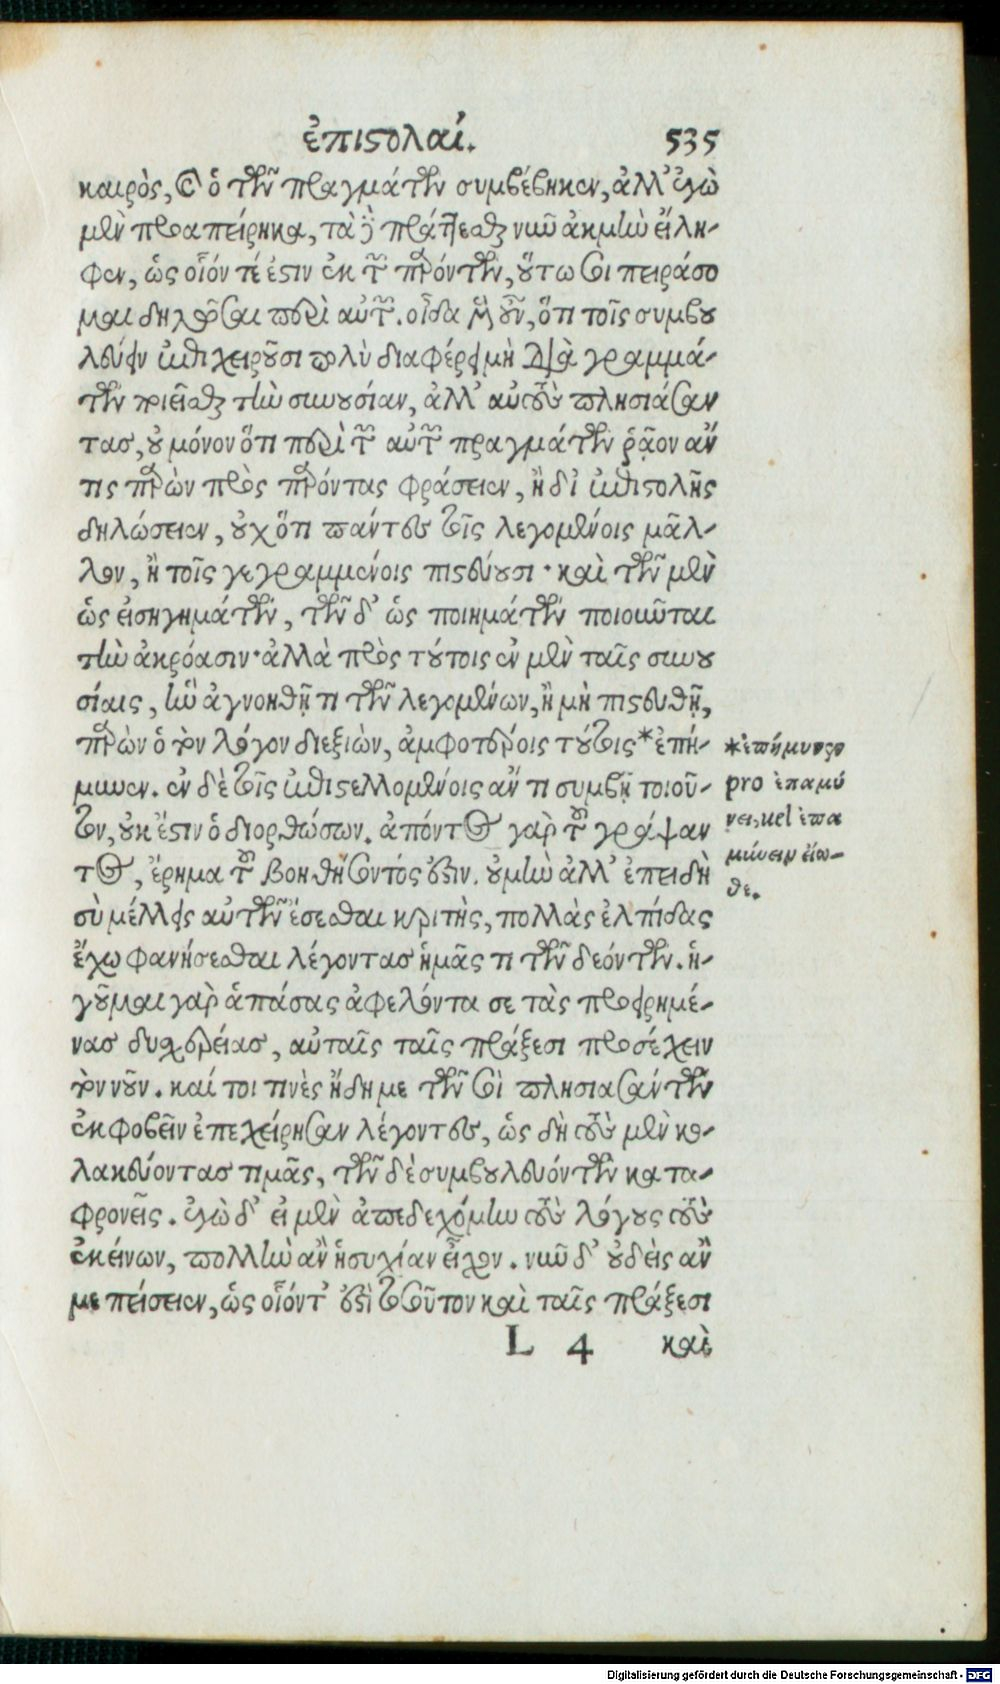 ἐπιστολαί. 535
καιρὸς, καὶ ὁ τῶν πραγμάτων συμβέβηκεν, ἀλλ' ἐγὼ
μὲν προαπείρηκα, τὰ γὰρ πράττεσθαι νῦν ἀκμὴν εἴλη-
φεν, ὡς οἷόν τέ ἐστιν ἐκ τῶν παρόντων, οὕτω σοι πειράσο
μαι δηλῶσαι περὶ αὐτῶν. οἶδα μὲν οὖν, ὅτι τοῖς συμβου
λεύειν ἐπιχειροῦσι πολὺ διαφέρει μὴ διὰ γραμμά-
των ποιεῖσθαι τὴν συνουσίαν, ἀλλ' αὐτοὺς πλησιάσαν
τας, οὐ μόνον ὅτι περὶ τῶν αὐτῶν πραγμάτων ῥᾷον ἄν
τις παρὼν πρὸς παρόντας φράσειεν, ἢ δι' ἐπιστολῆς
δηλώσειεν, οὐχ ὅτι πάντες τοῖς λεγομένοις μᾶλ-
λον, ἢ τοῖς γεγραμμένοις πιστεύουσι· καὶ τῶν μὲν
ὡς εἰσηγημάτων, τῶν δ' ὡς ποιημάτων ποιοῦνται
τὴν ἀκρόασιν· ἀλλὰ πρὸς τούτοις ἐν μὲν ταῖς συνου
σίαις, ἢν ἀγνοηθῇ τι τῶν λεγομένων, ἢ μὴ πιστευθῇ,
παρὼν ὁ τὸν λόγον διεξιὼν, ἀμφοτέροις τούτοις *ἐπή-
μυνεν. ἐν δὲ τοῖς ἐπιστελλομένοις ἄν τι συμβῇ τοιοῦ-
τον, οὐκ ἔστιν ὁ διορθώσων. ἀπόντος γὰρ τοῦ γράψαν
τος, ἔρημα τοῦ βοηθήσοντός ἐστιν. οὐ μὴν ἀλλ' ἐπειδὴ
σὺ μέλλεις αὐτῶν ἔσεσθαι κριτὴς, πολλὰς ἐλπίδας
ἔχω φανήσεσθαι λέγοντας ἡμᾶς τι τῶν δεόντων. ἡ-
γοῦμαι γὰρ ἁπάσας ἀφελόντα σε τὰς προειρημέ-
νας δυσχερείας, αὐταῖς ταῖς πράξεσι προσέχειν
τὸν νοῦν. καί τοι τινὲς ἤδη με τῶν σοὶ πλησιασάντων
ἐκφοβεῖν ἐπεχείρησαν λέγοντες, ὡς δὴ τοὺς μὲν κο-
λακεύοντας τιμᾷς, τῶν δὲ συμβουλευόντων κατα-
φρονεῖς. ἐγὼ δ' εἰ μὲν ἀπεδεχόμην τοὺς λόγους τοὺς
ἐκείνων, πολλὴν ἂν ἡσυχίαν εἶχον. νῦν δ' οὐδεὶς ἄν
με πείσειεν, ὡς οἷόντ' ἐστὶ τοσοῦτον καὶ ταῖς πράξεσι
L 4 καὶ
*ἐπήμυνε
pro ἐπαμύ
νει, uel ἐπα
μύνειν εἴω-
θε.